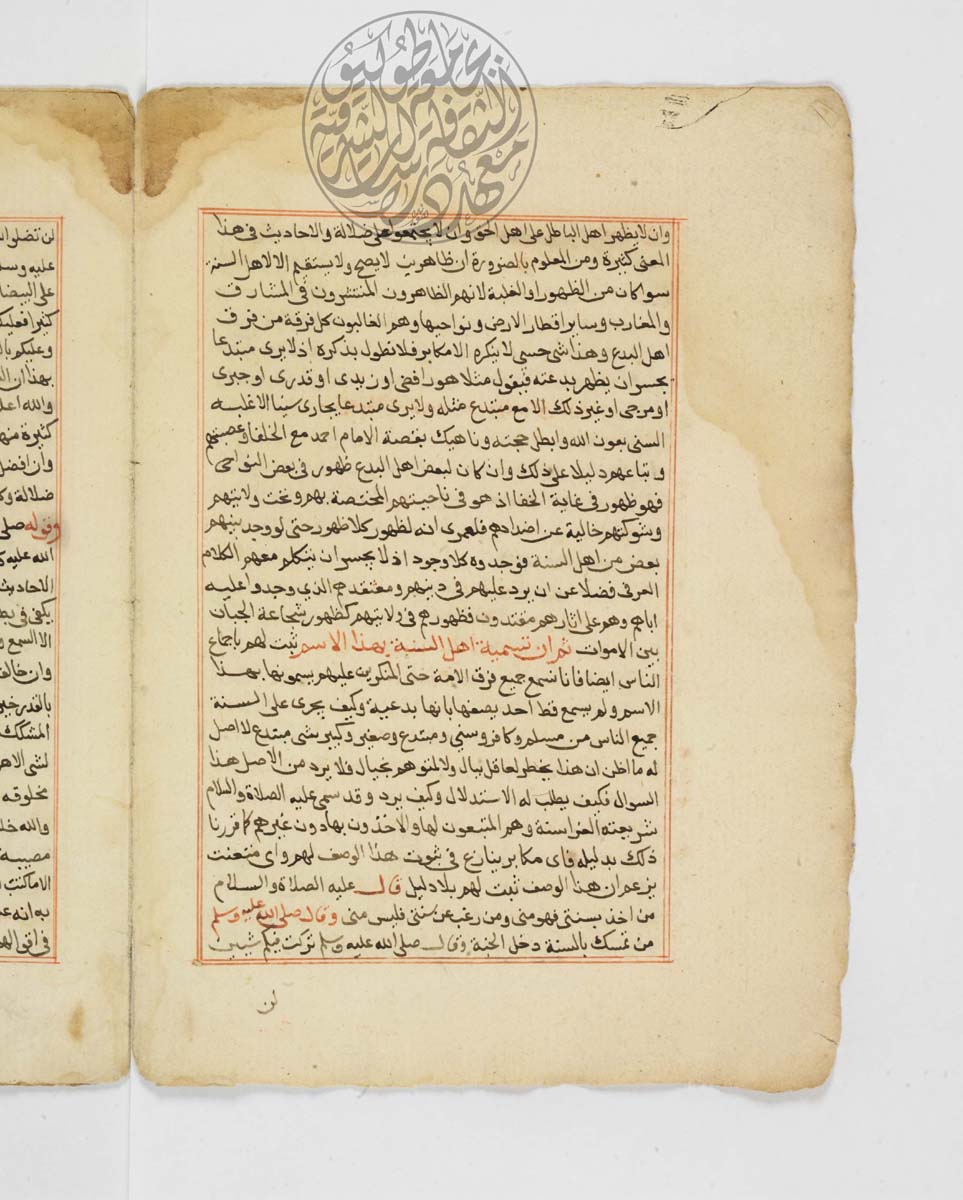 وان لا يظهر اهل الباطل على اهل الحق وان لا يجتمعوا على ضلالة والاحاديث في هذا
المعنى كثيرة ومن المعلوم بالضرورة ان ظاهرين لا يصح ولا يستقيم الا لاهل السنة
سوا كان من الظهور او الغلبة لانهم الظاهرون المنتشرون في المشارق
والمغارب وساير اقطار الارض ونواحيها وهم الغالبون كل فرقة من فرق
اهل البدع وهذا شي حسي لا ينكره الا مكابر فلا نطول بذكره اذ لا يرى مبتدعا
يجسر ان يظهر بدعته فيقول مثلا هو رافضي او زيدي او قدري او جبري
او مرجي او غير ذلك الا مع مبتدع مثله ولا يرى مبتدعا يجارى سنيا الا غلبه
السني بعون الله وابطل حجته وناهيك بقصة الامام احمد مع الخلفا وعصبتهم
وتباعهم دليلا على ذلك وان كان لبعض اهل البدع ظهور في بعض النواحي
فهو ظهور في غاية الخفا اذ هو في ناحيتهم المختصة بهم وتحت ولايتهم
وشوكتهم خالية عن اضدادهم فلعمري انه لظهور كلا ظهور حتى لو وجد بينهم
بعض من اهل السنة فوجوده كلا وجود اذ لا يجسر ان يتكلم معهم الكلام
العرفي فضلا عن ان يرد عليهم في دينهم ومعتقدهم الذي وجدوا عليه
اباهم وهم على اثارهم مقتدون فظهورهم في ولايتهم كظهور شجاعة الجبان
بين الاموات ثم ان تسمية اهل السنة بهذا الاسم ثبت لهم باجماع
الناس ايضا فانا نسمع جميع فرق الامة حتى المنكرين عليهم يسمونها بهذا
الاسم ولم يسمع قط احد يصفها بانها بدعية وكيف يجرى على السنة
جميع الناس من مسلم وكافر وسني ومبتدع وصغير وكبير شي مبتدع لا اصل
له ما اظن ان هذا يخطر لعاقل ببال ولا لمتوهم بخيال فلا يرد من الاصل هذا
السوال فكيف يطلب له الاستدلال وكيف يرد وقد سمى عليه الصلاة والسلام
شريعته الغرا سنة وهم المتبعون لها والاخذون بها دون غيرهم كما قررنا
ذلك بدليله فاي مكابر ينازع في ثبوت هذا الوصف لهم واي متعنت
يزعم ان هذا الوصف ثبت لهم بلا دليل قال عليه الصلاة والسلام
من اخذ بسنتي فهو مني ومن رغب عن سنتي فليس مني وقال صلى الله عليه وسلم
من تمسك بالسنة دخل الجنة وقال صلى الله عليه وسلم تركت فيكم شيين
لن
لن تضلوا
عليه وسلم
على البيضا
كثيرا فعليكم
وعليكم
بهذا ان
والله اعلم
كثيرة منها
وان افضل
ضلالة
وقوله صلى
الله عليه
الاحاديث
يكفى في
الا السبع
وان خالف
بالقدر
المشكك
لشي الا
مخلوقه
والله
مصيبة
الا ما كتب
به انه
في افق
معهد دراسات الثقافة الشرقية
بجامعة طوكيو